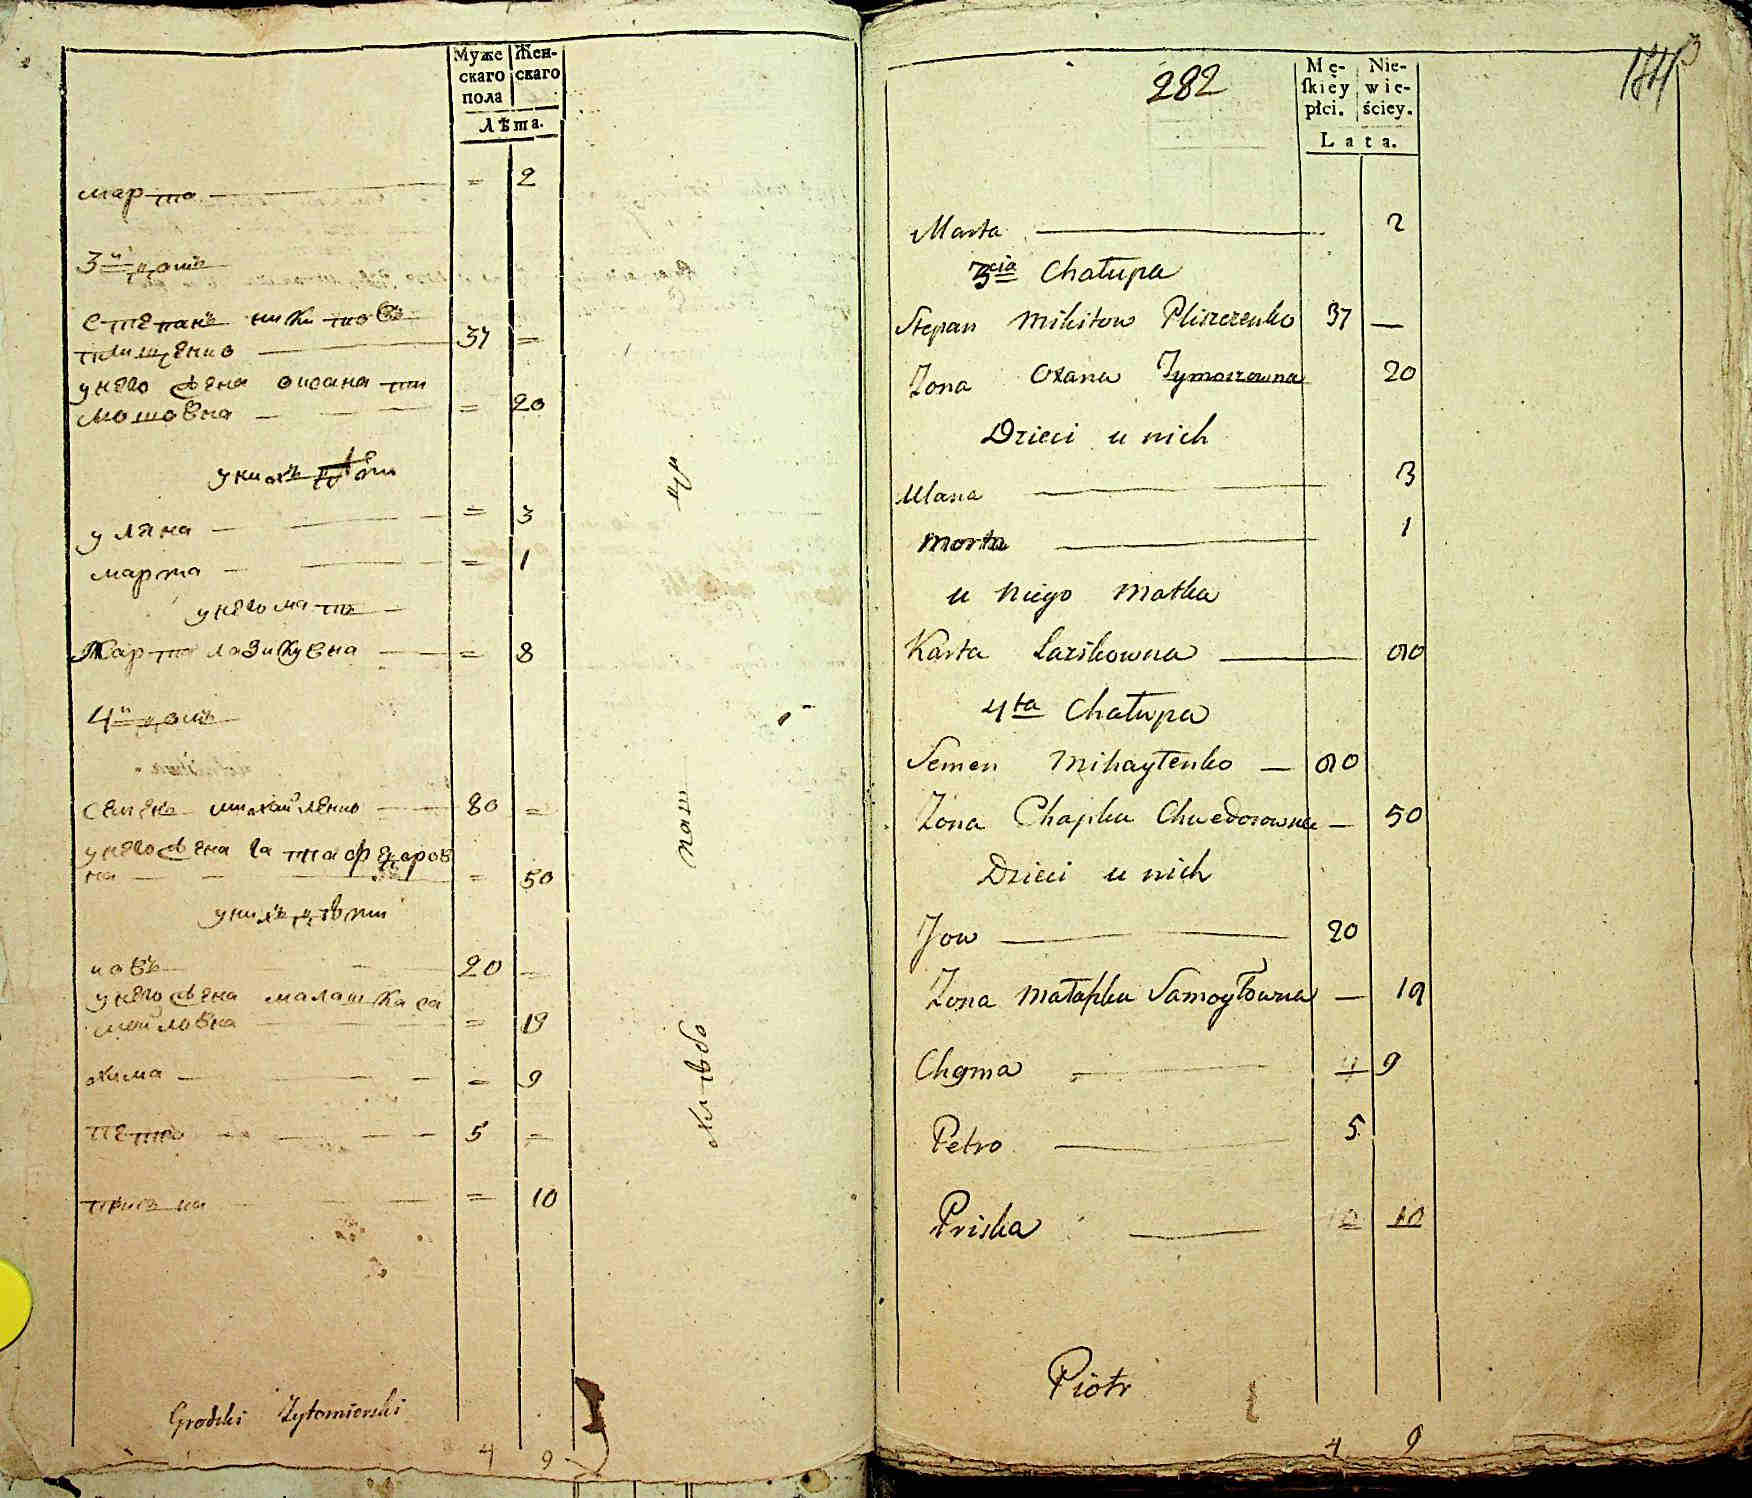 Муже Жен-
скаго скаго
пола
Лѣта.
марта = 2
3й домъ
степанъ никитовъ
плищенко 37 =
у него жена оксана ти
мошовна = 20
у нихъ дѣти
уляна = 3
марта = 1
у него мать
Карта лазикувна = 8
4й домъ
семенъ михайленко 80 =
у него жена гапка федоров
на = 50
у нихъ дѣти
иовъ 20 —
у него жена малашка са
мойловна = 19
хима = 9
петро 5 —
приска = 10
Grodzki Żytomierski
4 9
282
Mę- Nie-
skiey wie-
płci. ściey.
Lata.
Marta 2
3cia Chałupa
Stepan Mikitow Pliszczenko 37 —
Żona Oxana Tymoszowna 20
Dzieci u nich
Ulana 3
Marta 1
u niego Matka
Karta Lazikowna 80
4ta Chałupa
Semen Mihayłenko — 80
Żona Chapka Chwedorowna — 50
Dzieci u nich
Jow 20
Żona Małaszka Samoyłowna — 19
Chyma 9
Petro 5
Priska 10
Piotr
4 9